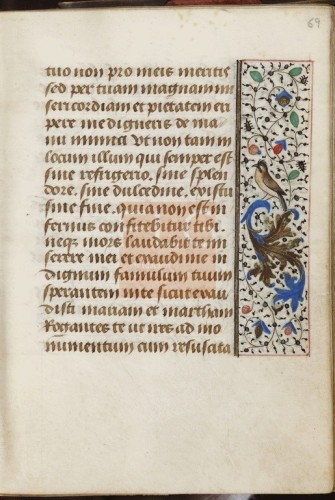 69
tuo non pro meis meritis
sed per tuam magnam mi
sericordiam et pietatem eri
pere me digneris de ma
nu inimici Vt non tam in
locum illum qui semper est
sine refrigerio. sine splen
dore. sine dulcedine. et
sine fine. quia non est in
fernus confitebitur tibi
neque mors laudabit te mi
serere mei et exaudi me in
dignum famulum tuum
sperantem in te sicut exau
disti mariam et martham
Rogantes te ut ires ad mo
numentum cum resuscita